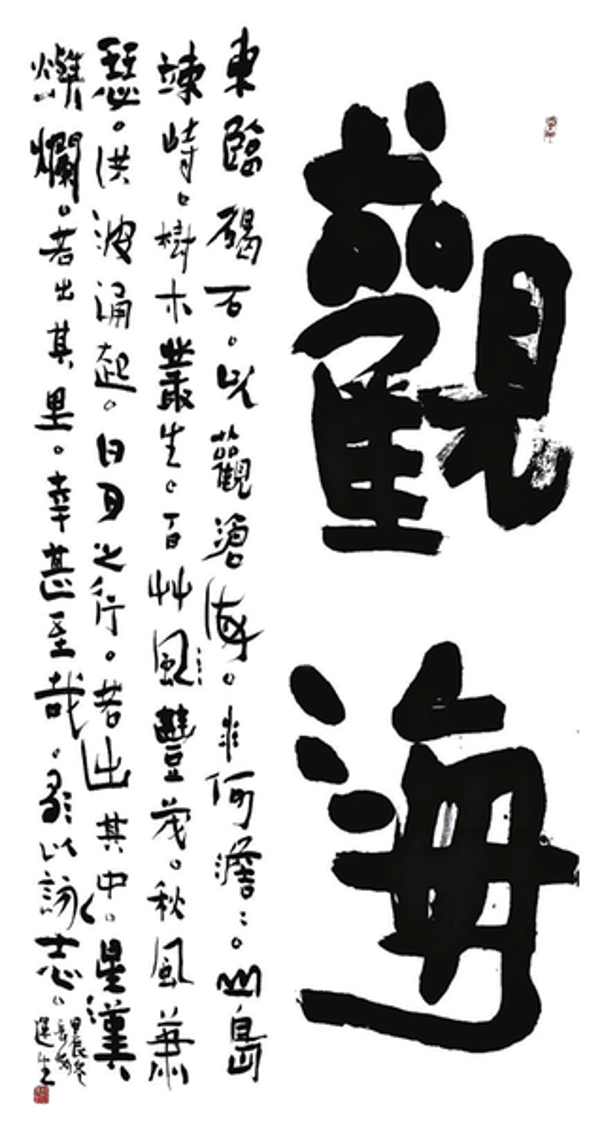 觀海
東臨碣石。以觀滄海。水何澹:。山島
竦峙。樹木叢生。百艸風豐茂。秋風蕭
瑟。洪波涌起。日月之行。若出其中。星漢
燦爛。若出其里。幸甚至哉。歌以詠志。
甲辰冬
運生